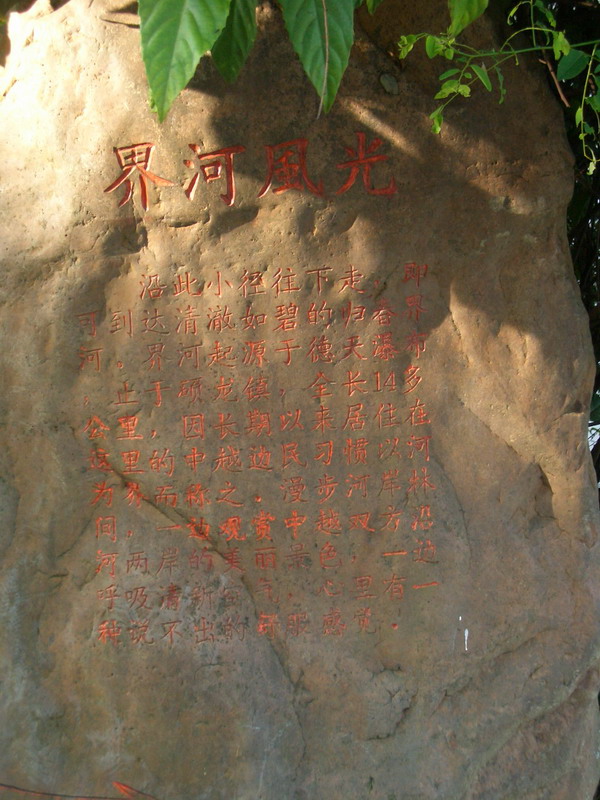 界河風光
沿此小径往下走，即
可到达清澈如碧的归春界
河。界河起源于德天瀑布
。止于硕龙镇，全长14多
公里，因长期以来居住在
里的中越边民习惯以河
为界，而称之，漫步河岸林
间，一边观赏中越双方沿
河两岸的美丽景色，一边
呼吸清新域气，心里有一
种说不出的舒服感觉。